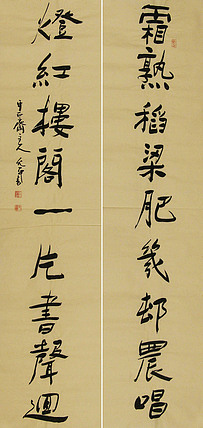 霜熟稻粱肥幾邨農唱
燈紅樓閣一片書聲迴